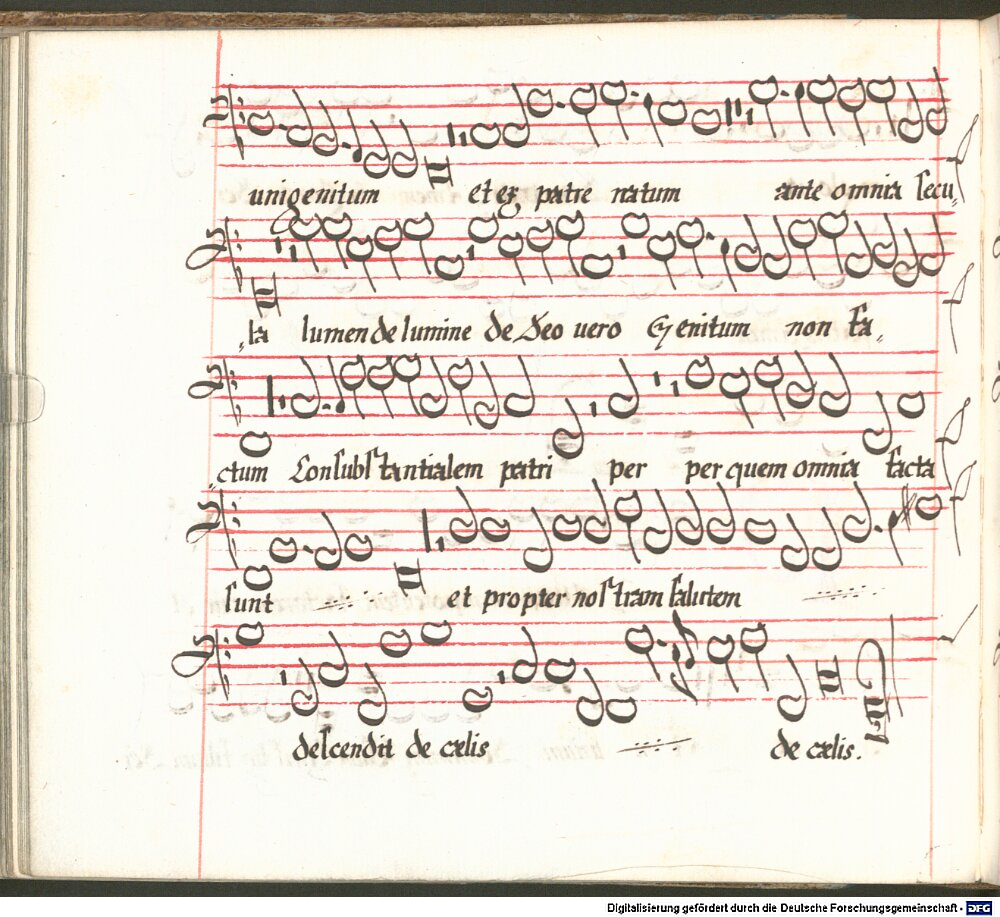 unigenitum et ex patre natum ante omnia secu„
„la lumen de lumine de Deo uero Genitum non fa„
„ctum Consubstantialem patri per per quem omnia facta
sunt et propter nostram salutem
descendit de cælis de cælis.
Digitalisierung gefördert durch die Deutsche Forschungsgemeinschaft - DFG